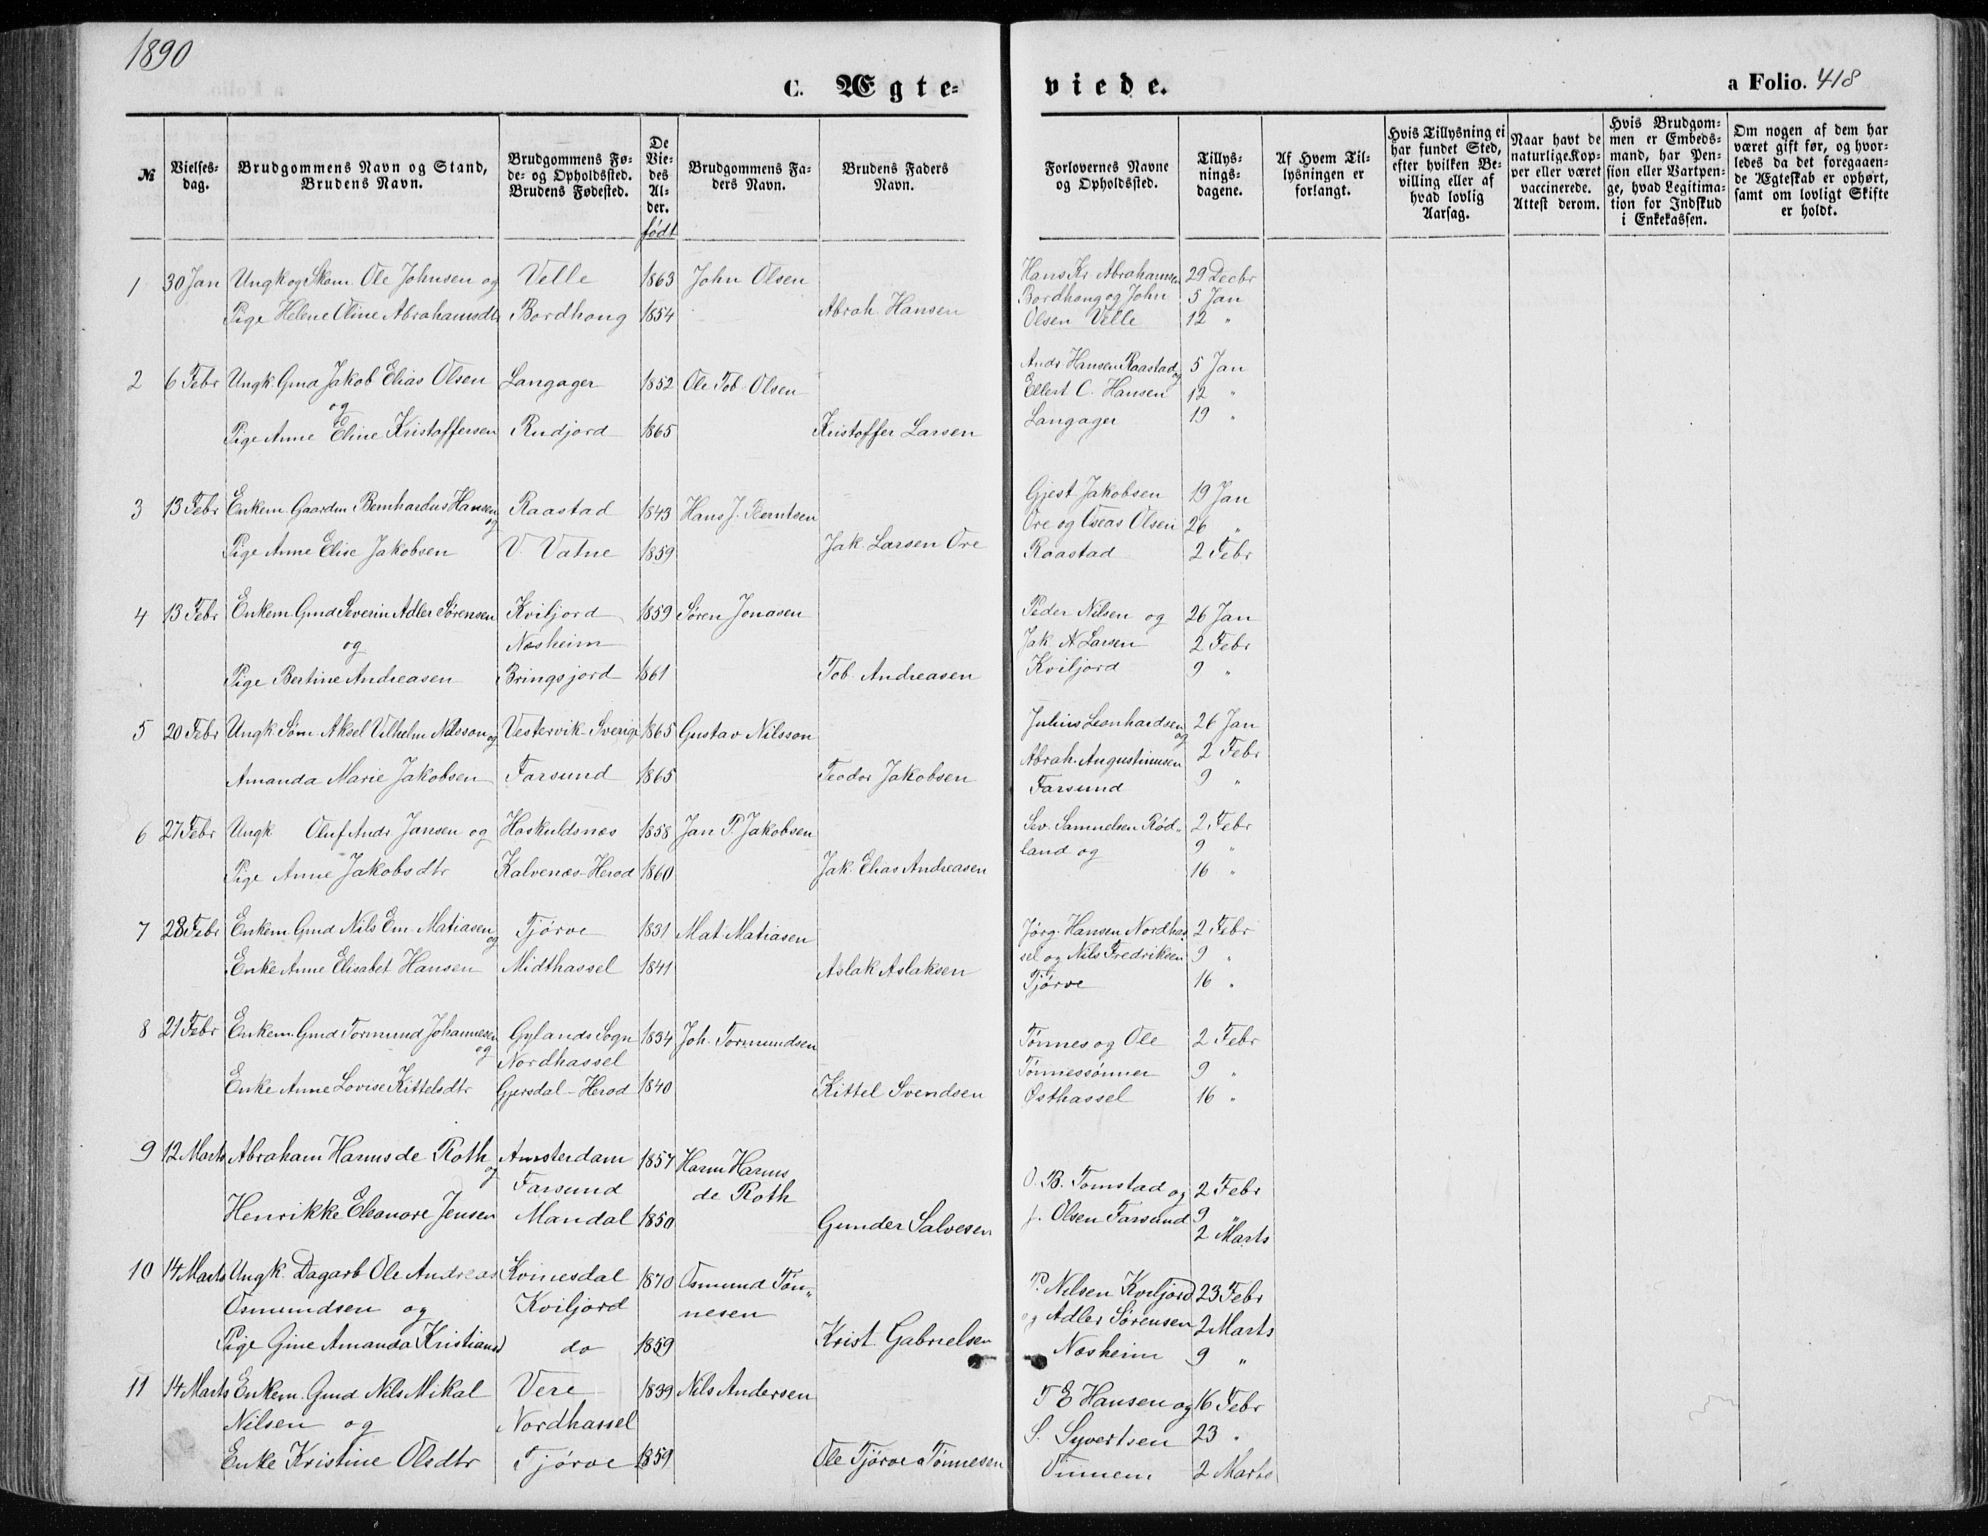 1890
C. Ægte-
viede.
a Folio. 418
№
Vielses-
dag.
Brudgommens Navn og Stand,
Brudens Navn.
Brudgommens Fø-
de- og Opholdssted.
Brudens Fødested.
De
Vie-
des
Al-
der.
født
Brudgommens Fa-
ders Navn.
Brudens Faders
Navn.
Forlovernes Navne
og Opholdssted.
Tillys-
nings-
dagene.
Af Hvem Til-
lysningen er
forlangt.
Hvis Tillysning ei
har fundet Sted,
efter hvilken Be-
villing eller af
hvad lovlig
Aarsag.
Naar havt de
naturlige Kop-
per eller været
vaccinerede.
Attest derom.
Hvis Brudgom-
men er Embeds-
mand, har Pen-
sion eller Vartpen-
ge, hvad Legitima-
tion for Indskud
i Enkekassen.
Om nogen af dem har
været gift før, og hvor-
ledes da det foregaaen-
de Ægteskab er ophørt,
samt om lovligt Skifte
er holdt.
1 30 Jan Ungk og Skom. Ole Johnsen og Velle 1863 John Olsen
Pige Helene Oline Abrahamsdtr Bordhoug 1854 Abrah. Hansen
Hans Kr Abrahamsen 29 Decbr
Bordhoug og John 5 Jan
Olsen Velle 12 "
2 6 Febr Ungk. Gmd Jakob Elias Olsen Langager 1852 Ole Tob. Olsen
og
Pige Anne Eline Kristoffersen Rudjord 1865 Kristoffer Larsen
Andr Hansen Raastad og 5 Jan
Ellert C. Hansen 12 "
Langager 19 "
3 13 Febr Enkem. Gaardm Bernhardus Hansen og Raastad 1843 Hans J. Berntsen
Pige Anne Elise Jakobsen V. Vatne 1859 Jak. Larsen Ore
Gjest Jakobsen 19 Jan
Ore og Oseas Olsen 26 "
Raastad 2 Febr
4 13 Febr Enkem. Gmd Severin Adler Sørensen Kviljord 1859 Søren Jonasen
og Næsheim
Pige Bertine Andreasen Bringsjord 1861 Tob. Andreasen
Peder Nilsen og 26 Jan
Jak N Larsen 2 Febr
Kviljord 9 "
5 20 Febr Ungk. Søm. Aksel Vilhelm Nilsson og Vestervik-Sverige 1865 Gustav Nilsson
Amanda Marie Jakobsen Farsund 1865 Teodor Jakobsen
Julius Leonhardsen og 26 Jan
Abrah. Augustinusen 2 Febr
Farsund 9 "
6 27 Febr Ungk Oluf Andr Jansen og Haskuldsnæs 1858 Jan P. Jakobsen
Pige Anne Jakobsdtr Kalvenæs-Herod 1860 Jak. Elias Andreasen
Sev. Samuelsen Rød- 2 Febr
land og 9 "
16 "
7 28 Febr Enkem. Gmd Nils Em. Matiasen og Tjørve 1831 Mat. Matiasen
Enke Anne Elisabet Hansen Midthassel 1841 Aslak Aslaksen
Jørg. Hansen Nordhas 2 Febr
sel og Nils Fredriksen 9 "
Tjørve 16 "
8 21 Febr Enkem. Gmd Tormund Johannesen og Gylands Sogn 1834 Joh. Tormundsen
Nordhassel
Enke Anne Lovise Kittelsdtr Gjersdal-Herod 1840 Kittel Svendsen
Tønnes og Ole 2 Febr
Tønnessønner 9 "
Østhassel 16 "
9 12 Marts Abraham Harms de Roth og Amsterdam 1857 Harm Harms
Farsund de Roth
Henrikke Eleonore Jensen Mandal 1850 Gunder Salvesen
O. B. Tomstad og 2 Febr
J. Olsen Farsund 9 "
2 Marts
10 14 Marts Ungk. Dagarb Ole Andreas Kvinesdal 1870 Osmund Tøn-
Osmundsen og Kviljord nesen
Pige Gine Amanda Kristiansd do 1859 Krist. Gabrielsen
P. Nilsen Kviljord 23 Febr
og Adler Sørensen 2 Marts
Næsheim 9 "
11 14 Marts Enkem. Gmd Nils Mikal Vere 1839 Nils Andersen
Nilsen og Nordhassel
Enke Kristine Olsdtr Tjørve 1859 Ole Tjørve a Tønnesen
T E Hansen og 16 Febr
S. Syvertsen 23 "
2 Marts